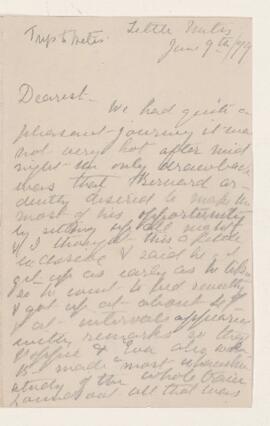 Trip to Metis. Little Metis
June 9th/79
Dearest-
We had quite a
pleasant journey it was
not very hot after mid
night the only drawback
was that Bernard ar
dently desired to make the
most of his opportunity
by sitting up all night
& I thought this a little
& said he
get up as early as he liked
so he went to bed
& got up at about
at intervals
with remarks so they
& Eva also woke
B. made most
study of the whole train
found out all that was